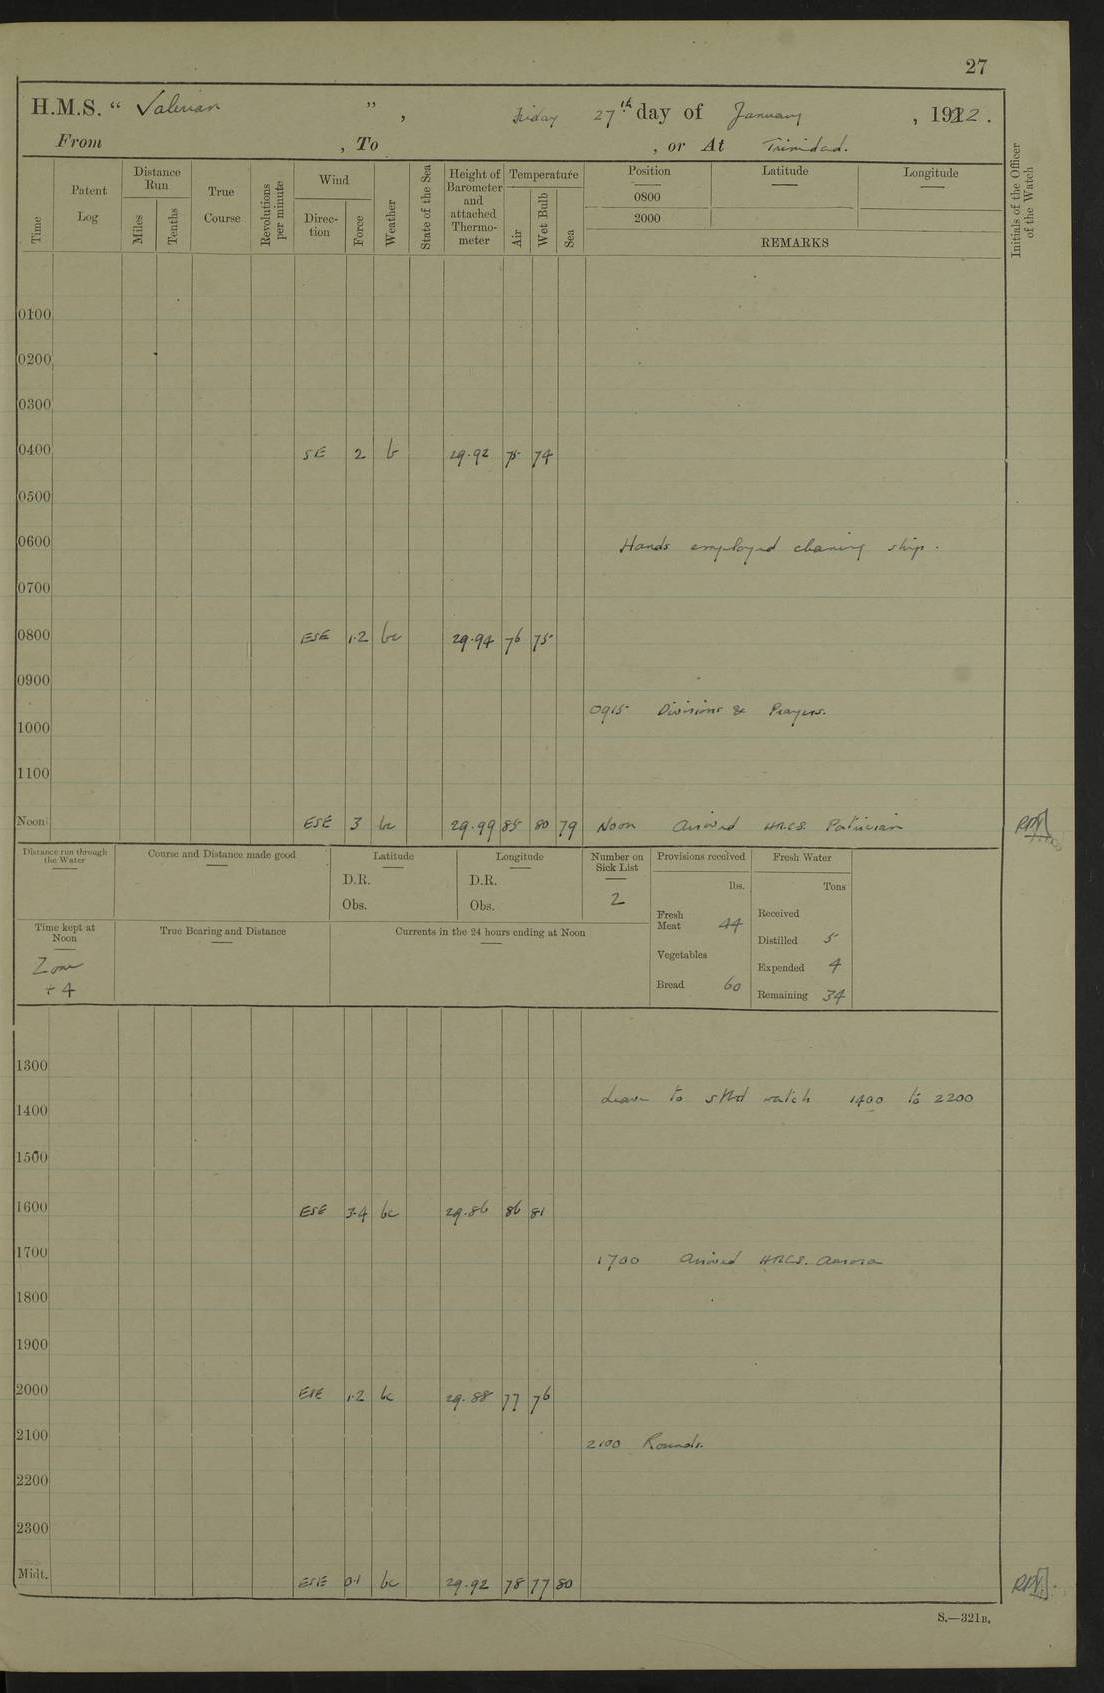 27
H.M.S. “ Valerian ” , Friday 27th day of January , 1922 .
From , To , or At Trinidad.
Time
Patent Log
Distance Run
Miles
Tenths
True Course
Revolutions per minute
Wind
Direc-tion
Force
Weather
State of the Sea
Height of Barometer and attached Thermo-meter
Temperature
Air
Wet Bulb
Sea
Position
0800
2000
Latitude
Longitude
REMARKS
Initials of the Officer of the Watch
0100
0200
0300
0400 SE 2 b 29.92 75 74
0500
0600 Hands employed cleaning ship.
0700
0800 ESE 1.2 bc 29.94 76 75
0900
0915 Divisions & Prayers.
1000
1100
Noon ESE 3 bc 29.99 85 80 79 Noon Arrived H.M.C.S. Patrician
Distance run through the Water
Course and Distance made good
Latitude
D.R.
Obs.
Longitude
D.R.
Obs.
Number on Sick List
2
Provisions received
lbs.
Fresh Meat 44
Vegetables
Bread 60
Fresh Water
Tons
Received
Distilled 5
Expended 4
Remaining 34
Time kept at Noon
Zone
+ 4
True Bearing and Distance
Currents in the 24 hours ending at Noon
1300
Leave to stbd watch 1400 to 2200
1400
1500
1600 ESE 3.4 bc 29.86 86 81
1700 1700 Arrived H.M.C.S. Aurora
1800
1900
2000 ESE 1.2 bc 29.88 77 76
2100 2100 Rounds.
2200
2300
Midt. ESE 0.1 bc 29.92 78 77 80
S.—321B.